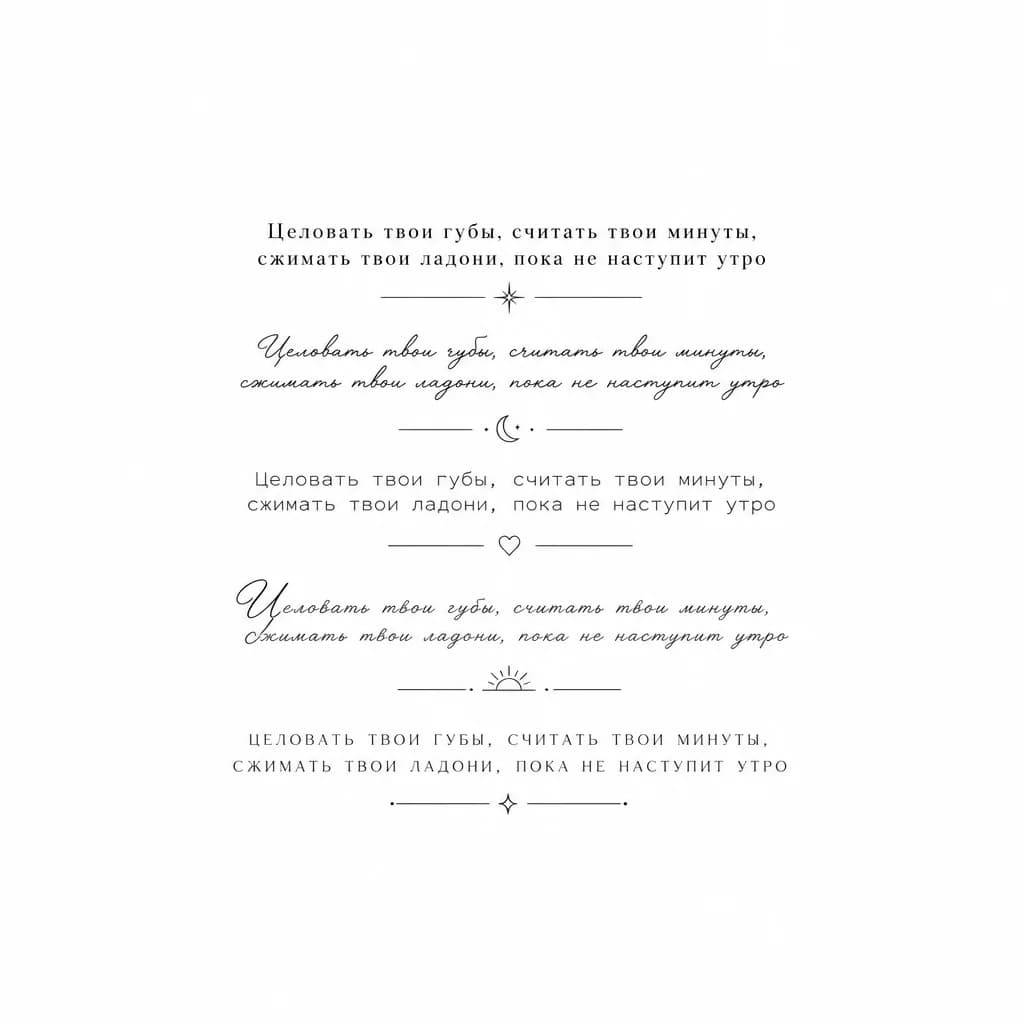 Целовать твои губы, считать твои минуты,
сжимать твои ладони, пока не наступит утро
Целовать твои губы, считать твои минуты,
сжимать твои ладони, пока не наступит утро
Целовать твои губы, считать твои минуты,
сжимать твои ладони, пока не наступит утро
Целовать твои губы, считать твои минуты,
Сжимать твои ладони, пока не наступит утро
ЦЕЛОВАТЬ ТВОИ ГУБЫ, СЧИТАТЬ ТВОИ МИНУТЫ,
СЖИМАТЬ ТВОИ ЛАДОНИ, ПОКА НЕ НАСТУПИТ УТРО